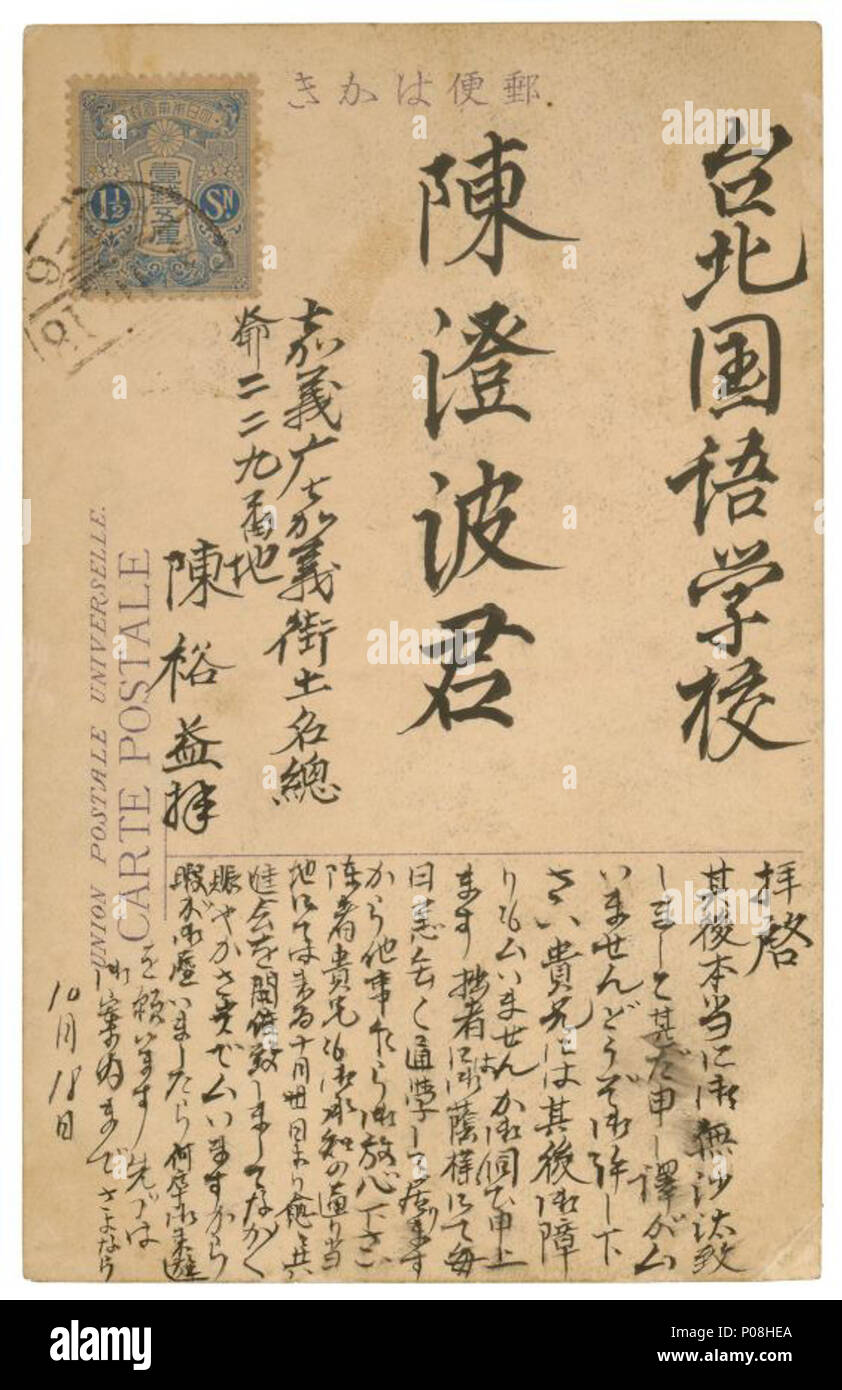 郵便はかき
大日本帝国郵便
壹錢五厘
1½ Sn
台北国語学校
陳澄波君
嘉義庁嘉義街土名總
爺二二九番地
陳裕益拝
UNION POSTALE UNIVERSELLE.
CARTE POSTALE
拝啓
其後本当に御無沙汰致
しまして甚だ申し譯がム
いませんどうぞ御許し下
さい貴兄には其後御障
りもムいませんか御伺ひ申上
ます拙者は御蔭様にて毎
日恙なく通學して居ります
から他事乍ら御放心下さい
陳者貴兄も御承知の通り当
地にては来る十月卅日より愈々共
進会を開催致しましてなかく
賑やかさうでムいますから
暇が御座いましたら何卒御来遊
を願います先づは
御案内までさよなら
10月18日
alamy
Image ID: P08HEA
www.alamy.com